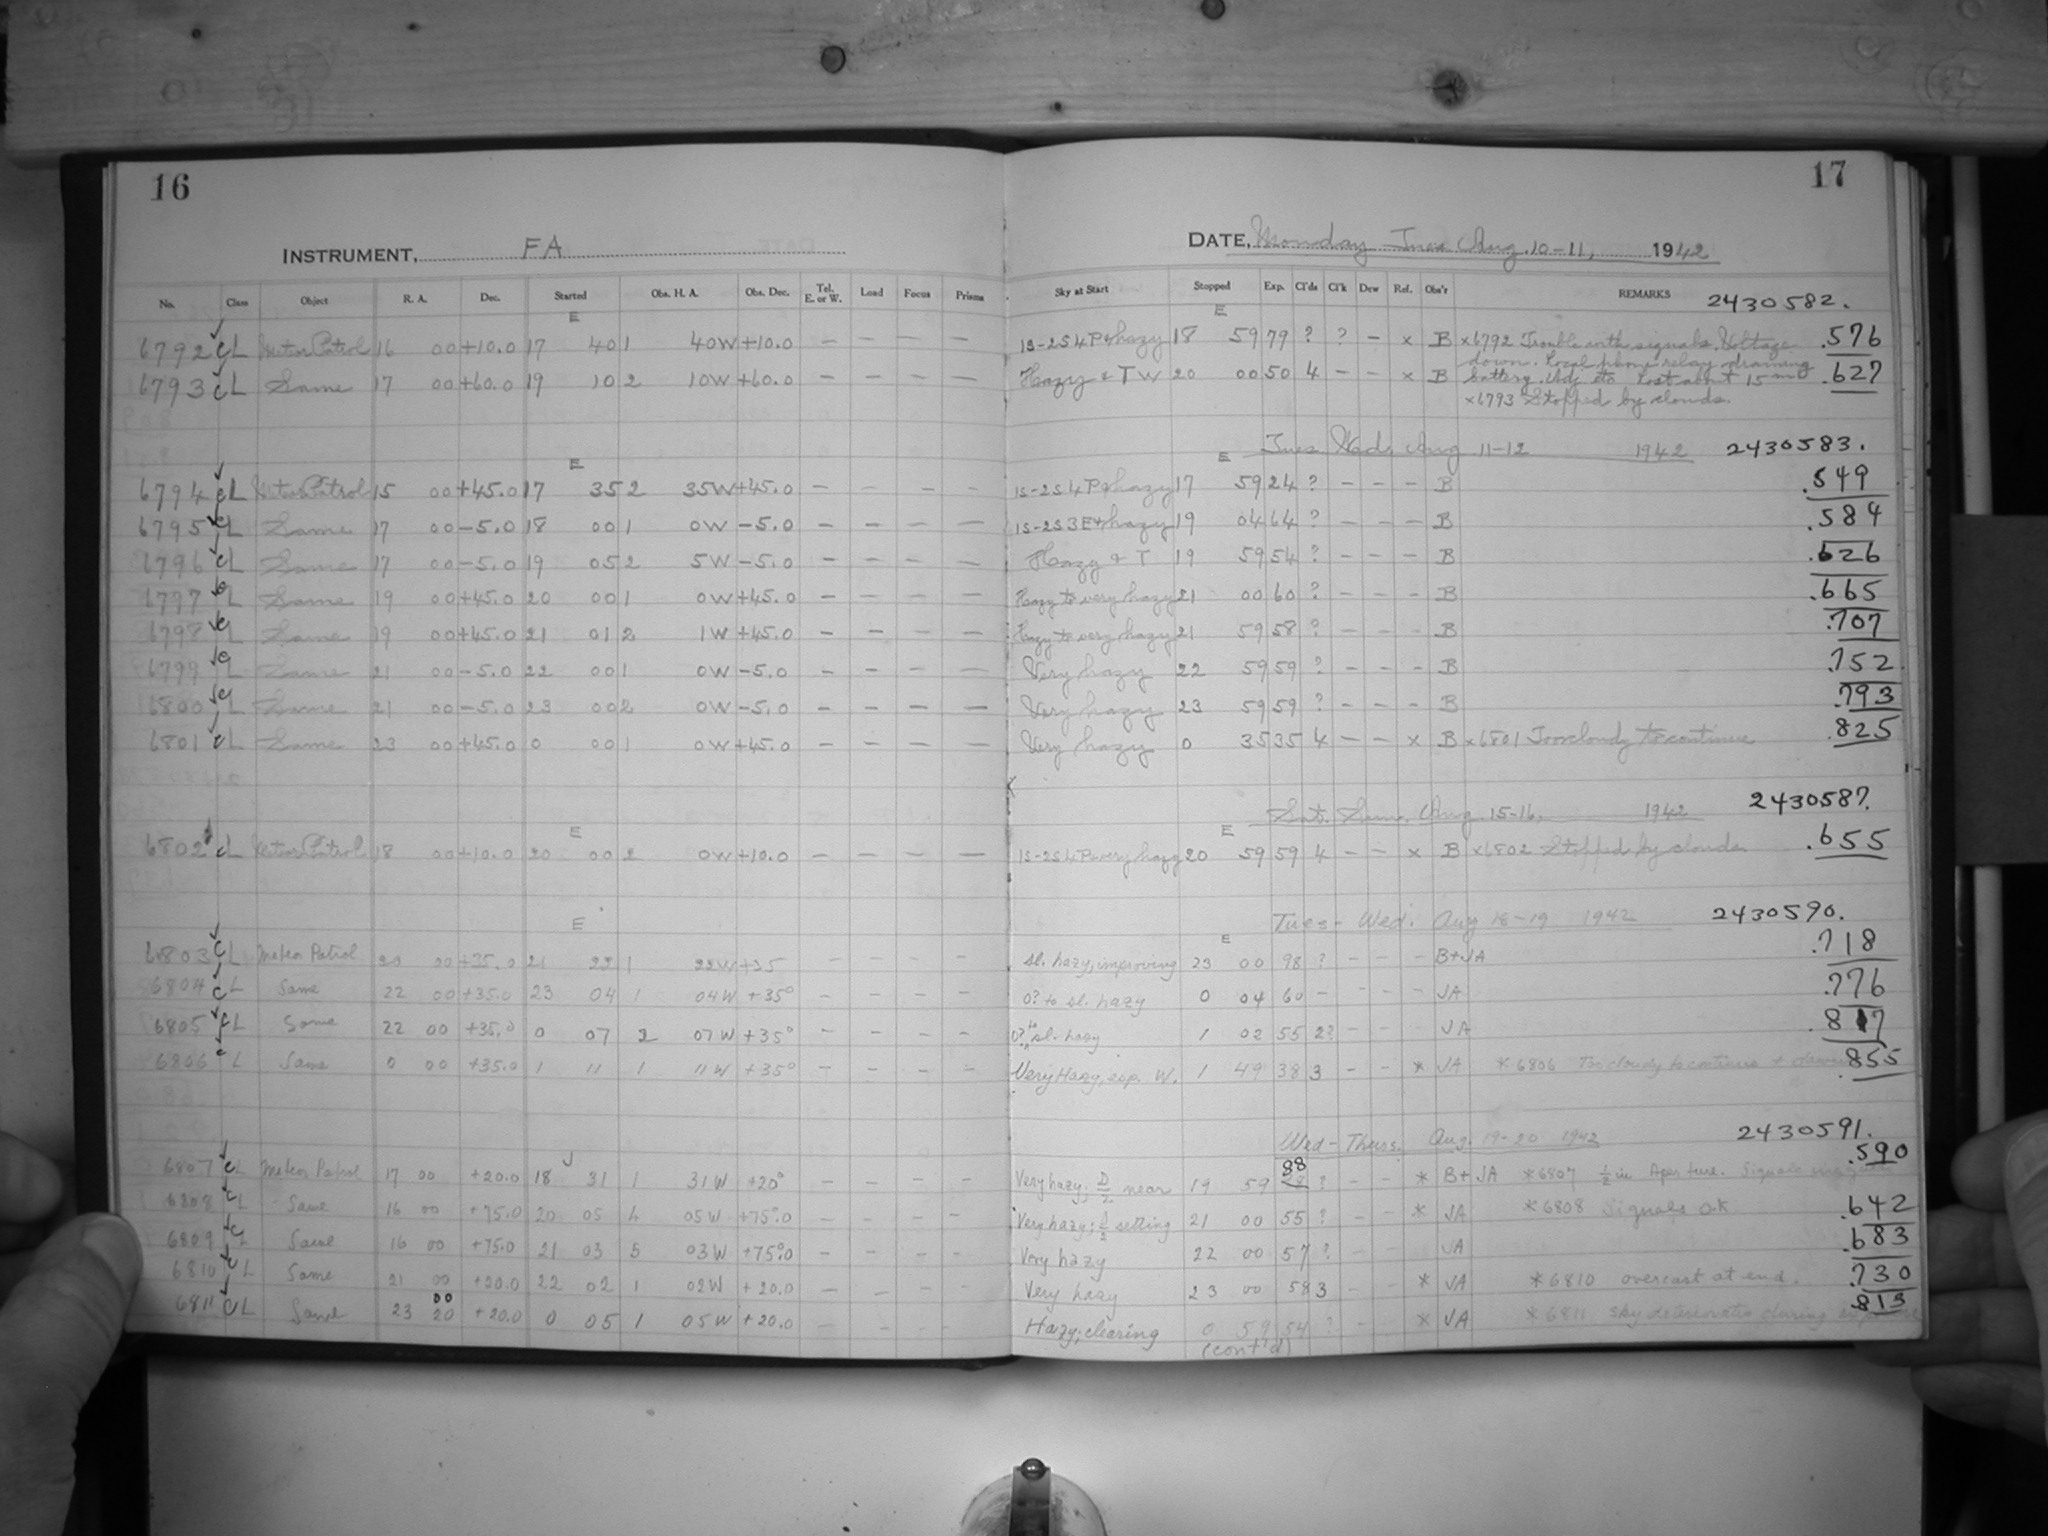 16
INSTRUMENT, FA
No. Class Object R. A. Dec. Started Obs. H. A. Obs. Dec. Tel. E. or W. Load Focus Prisms
E
6792 CL Meteor Patrol 16 00 +10.0 17 40 1 40W +10.0 — — — —
6793 CL Same 17 00 +60.0 19 10 2 10W +60.0 — — — —
E
6794 CL Meteor Patrol 15 00 +45.0 17 35 2 35W +45.0 — — — —
6795 CL Same 17 00 -5.0 18 00 1 0W -5.0 — — — —
6796 CL Same 17 00 -5.0 19 05 2 5W -5.0 — — — —
6797 CL Same 19 00 +45.0 20 00 1 0W +45.0 — — — —
6798 CL Same 19 00 +45.0 21 01 2 1W +45.0 — — — —
6799 CL Same 21 00 -5.0 22 00 1 0W -5.0 — — — —
6800 CL Same 21 00 -5.0 23 00 2 0W -5.0 — — — —
6801 CL Same 23 00 +45.0 0 00 1 0W +45.0 — — — —
E
6802 CL Meteor Patrol 18 00 +10.0 20 00 2 0W +10.0 — — — —
E
6803 CL Meteor Patrol 20 00 +35.0 21 22 1 22W +35 — — — —
6804 CL Same 22 00 +35.0 23 04 1 04W +35° — — — —
6805 CL Same 22 00 +35.0 0 07 2 07W +35° — — — —
6806 CL Same 0 00 +35.0 1 11 1 11W +35° — — — —
6807 CL Meteor Patrol 17 00 +20.0 18 31 1 31W +20° — — — —
6808 CL Same 16 00 +75.0 20 05 4 05W +75°.0 — — — —
6809 CL Same 16 00 +75.0 21 03 5 03W +75°.0 — — — —
6810 CL Same 21 00 +20.0 22 02 1 02W +20.0 — — — —
00
6811 CL Same 23 20 +20.0 0 05 1 05W +20.0 — — — —
17
DATE, Monday - Tues Aug. 10-11, 1942
Sky at Start Stopped Exp. Cl'ds Cl'k Dew Ref. Obs'r REMARKS 2430582.
E
1S-2S4P+hazy 18 59 79 ? ? — x B x6792 Trouble with signals. Voltage .576
down. Local phone relay draining
Hazy + TW 20 00 50 4 — — x B battery. etc Lost about 15 .627
x6793 Stopped by clouds.
E Tues. Wed. Aug 11-12 1942 2430583.
1S-2S4P+hazy 17 59 24 ? — — — B .549
1S-2S3E+hazy 19 04 64 ? — — — B .584
Hazy + T 19 59 54 ? — — — B .626
Hazy to very hazy 21 00 60 ? — — — B .665
Hazy to very hazy 21 59 58 ? — — — B .707
Very hazy 22 59 59 ? — — — B .752
Very hazy 23 59 59 ? — — — B .793
Very hazy 0 35 35 4 — — x B x6801 Too cloudy to continue .825
Sat. Sun. Aug 15-16, 1942 2430587.
E
1S-2S4P very hazy 20 59 59 4 — — x B x6802 Stopped by clouds .655
Tues - Wed. Aug 18-19 1942 2430590.
E
sl. hazy, improving 23 00 98 ? — — — B+JA .718
0? to sl. hazy 0 04 60 — — — — JA .776
0? to sl. hazy 1 02 55 2? — — — JA .817
Very Hazy, esp. W. 1 49 38 3 — — * JA *6806 Too cloudy to continue + .855
Wed - Thurs. Aug. 19-20 1942 2430591.
88
Very hazy; D/2 near 19 59 ? — — * B+JA *6807 1/2 in Aperture. Signals .590
Very hazy; setting 21 00 55 ? — — * JA *6808 Signals o.k. .642
Very hazy 22 00 57 ? — — JA .683
Very hazy 23 00 58 3 — — * JA *6810 overcast at end. .730
Hazy; clearing 0 59 54 ? — — * JA *6811 Sky deteriorates during .813
(cont'd)